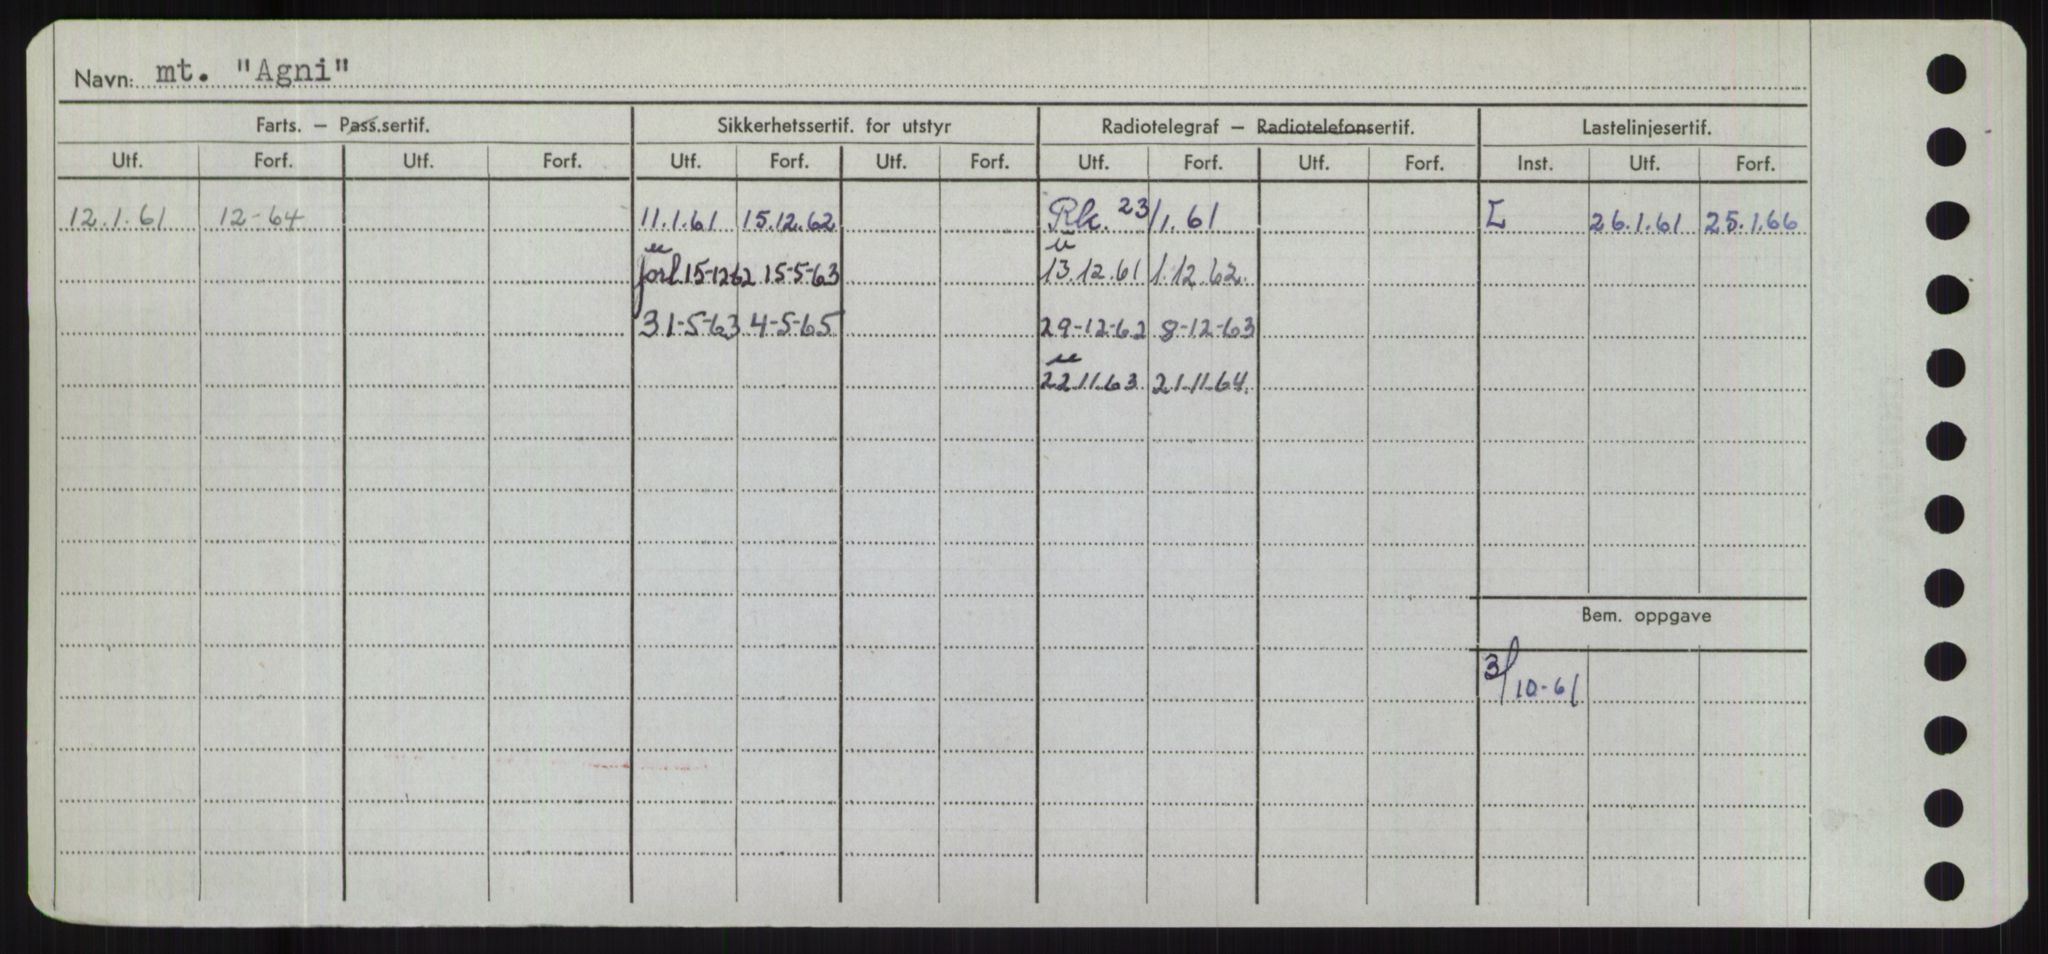 Navn: mt. "Agni"
Farts. — Pass.sertif. Sikkerhetssertif. for utstyr Radiotelegraf — Radiotelefonsertif. Lastelinjesertif.
Utf. Forf. Utf. Forf. Utf. Forf. Utf. Forf. Utf. Forf. Utf. Forf. Inst. Utf. Forf.
12.1.61 12-64 11.1.61 15.12.62 Rk. 23/1.61 26.1.61 25.1.66
u u
forl. 15-12-62 15-5-63 13.12.61 1.12.62
31-5-63 4-5-65 29-12-62 8-12-63
u
22.11.63 21.11.64.
Bem. oppgave
3/10-61